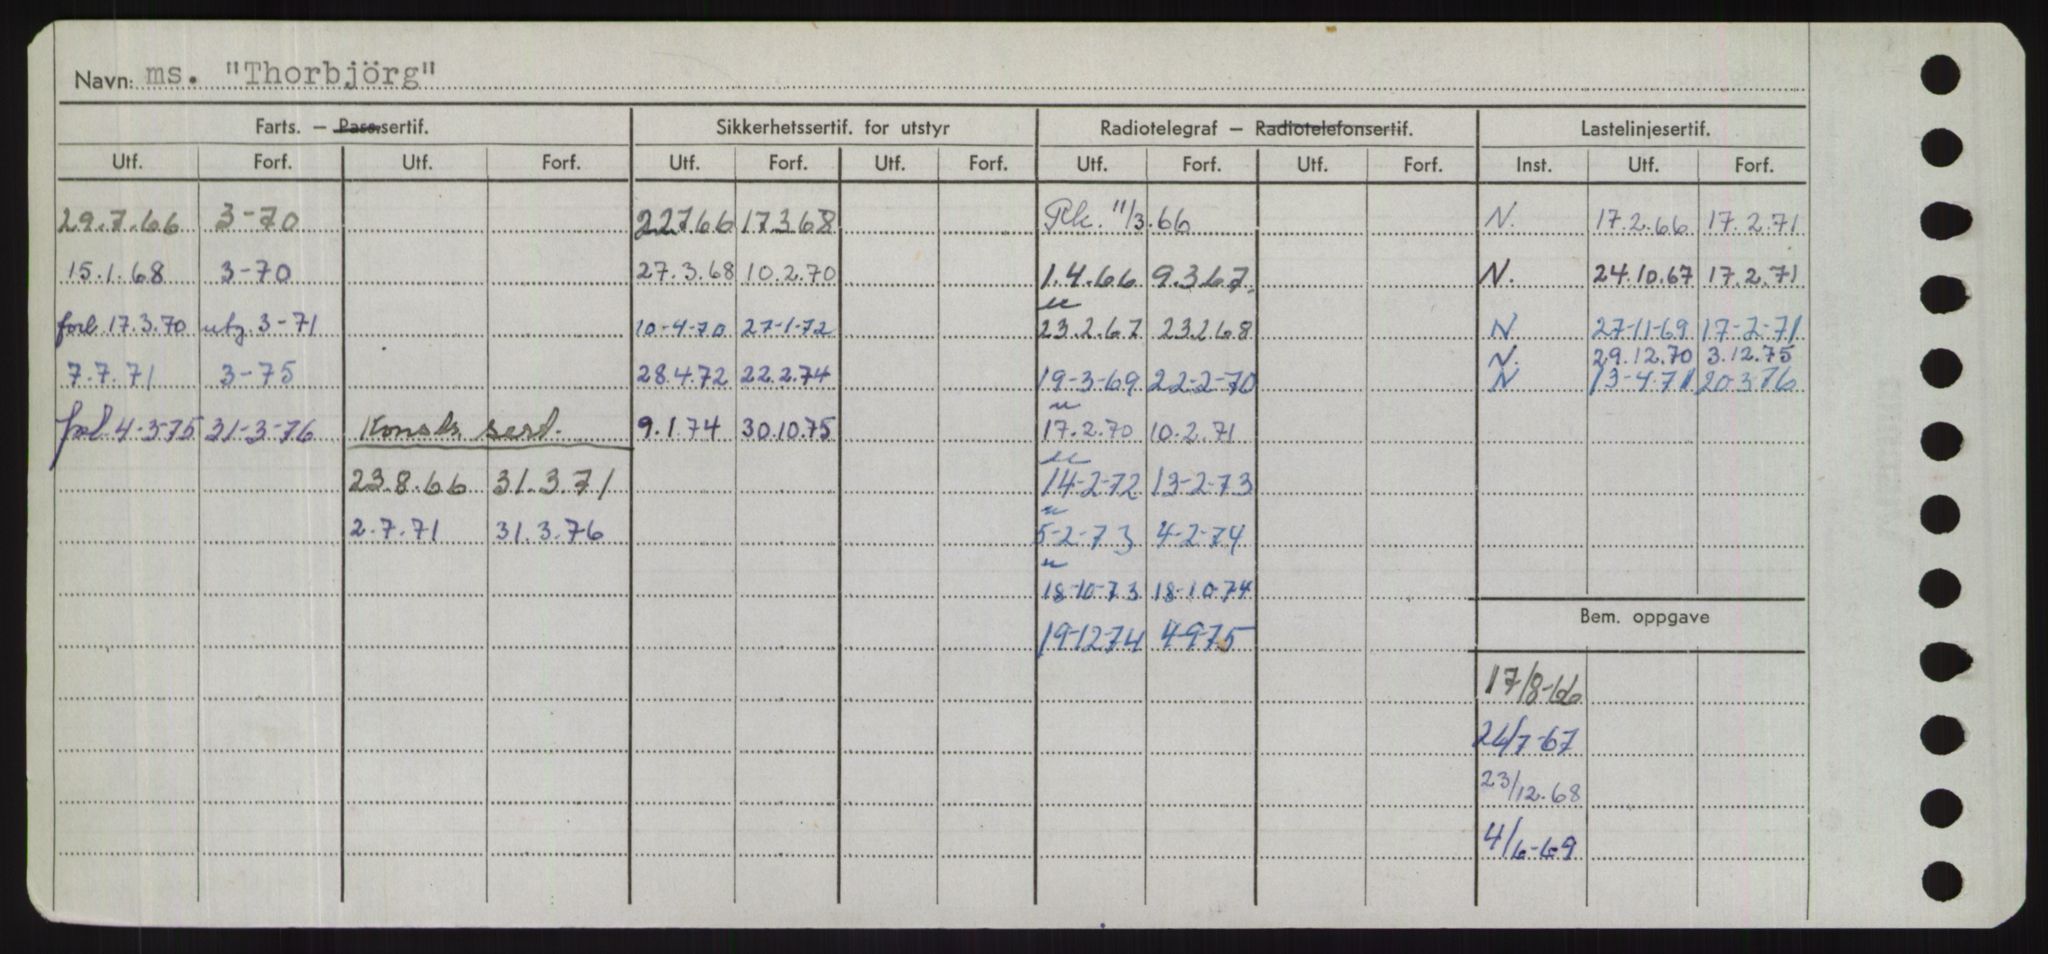 Navn: ms. "Thorbjörg"
Farts. – Pass.sertif. Sikkerhetssertif. for utstyr Radiotelegraf – Radiotelefonsertif. Lastelinjesertif.
Utf. Forf. Utf. Forf. Utf. Forf. Utf. Forf. Utf. Forf. Utf. Forf. Inst. Utf. Forf.
29.7.66 3-70 22766 17368 Rk. 11/3.66 N. 17.2.66 17.2.71
15.1.68 3-70 27.3.68 10.2.70 1.4.66 9.367. N. 24.10.67 17.2.71
forl. 17.3.70 utg. 3-71 10-4-70 27-1-72 23.2.67 23.268 N 27-11-69 17-2-71
N. 29.12.70 3.12.75
7.7.71 3-75 28.4.72 22.2.74 19-3-69 22-2-70 N 13-4.71 20-3-76
forl 4-3-75 31-3-76 Konstr. sert. 9.1.74 30.10.75 17.2.70 10.2.71
23.8.66 31.3.71 14-2-72 13-2-73
2.7.71 31.3.76 5-2-73 4-2-74
18-10-73 18-10-74
19-12-74 4-9-75
Bem. oppgave
17/8-66
26/7-67
23/12.68
4/6-69